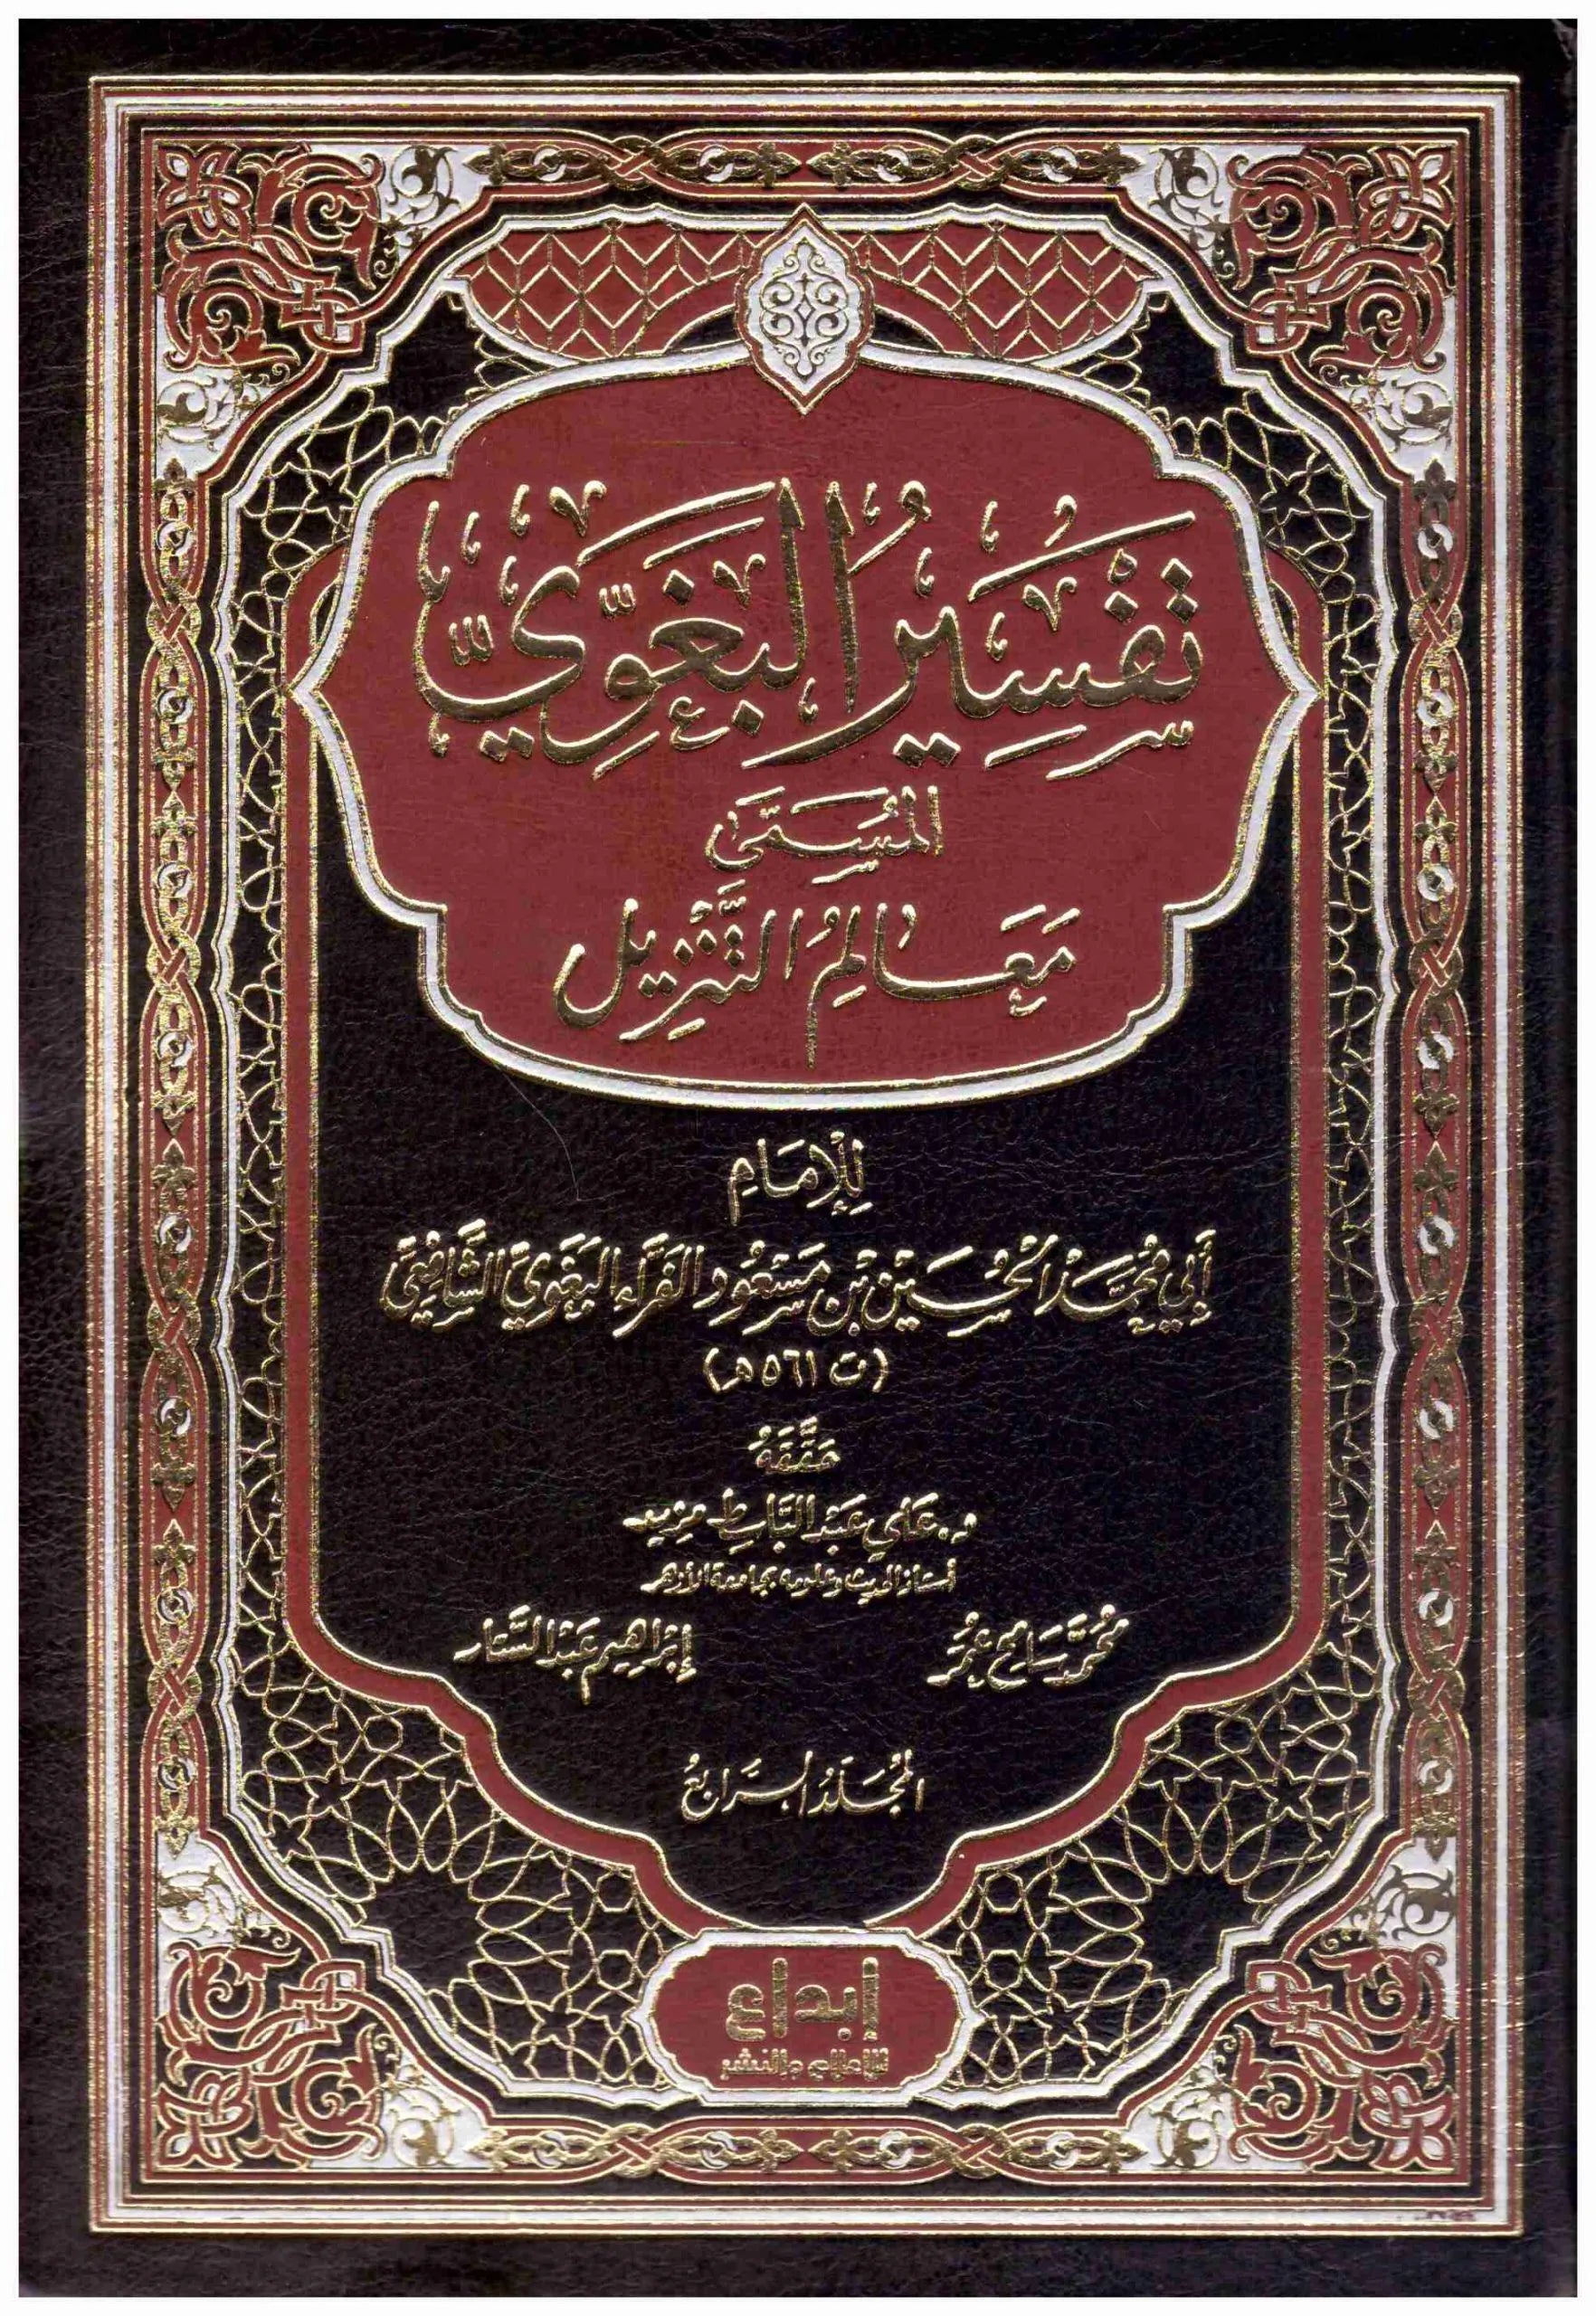 تَفْسِيرُ الْبَغَوِيِّ
المُسَمَّى
مَعَالِمُ التَّنْزِيل
لِلْإِمَامِ
أَبِي مُحَمَّد الْحُسَيْن بْن مَسْعُود الفَرَّاء البَغَوِيّ الشَّافِعِيّ
(ت ٥٦١ هـ)
حَقَّقَهُ
د. عَلي عَبْد البَاسِط مزيد
أستاذ الحديث وعلومه بجامعة الأزهر
مُحَمَّد سَامِح عُمَر
إِبْرَاهِيم عَبْد السَّتَّار
المُجَلَّدُ الرَّابِعُ
إبداع
للإعلام والنشر